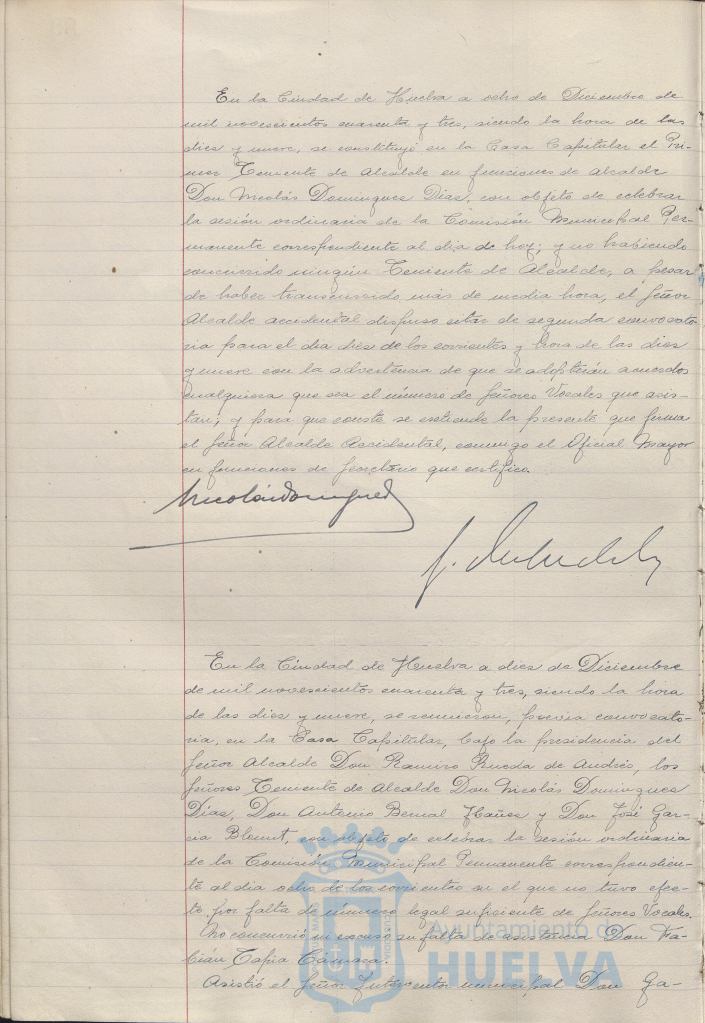 En la Ciudad de Huelva a ocho de Diciembre de
mil novescientos cuarenta y tres, siendo la hora de las
dies y nueve, se constituyó en la Casa Capitular el Pri-
mer Teniente de Alcalde en funciones de Alcalde
Don Nicolás Domingues Dias, con objeto de celebrar
la sesión ordinaria de la Comisión Municipal Per-
manente correspondiente al dia de hoy; y no habiendo
concurrido ningún Teniente de Alcalde, a pesar
de haber transcurrido más de media hora, el Señor
Alcalde accidental dispuso citar de segunda convocato-
ria para el dia dies de los corrientes y hora de las dies
y nueve con la advertencia de que se adoptarán acuerdos
cualquiera que sea el número de Señores Vocales que asis-
tan; y para que conste se extiende la presente que firma
el Señor Alcalde Accidental, conmigo el Oficial Mayor
en funciones de Secretario que certifico.
Nicolás Domingues
En la Ciudad de Huelva a dies de Diciembre
de mil novescientos cuarenta y tres, siendo la hora
de las dies y nueve, se reunieron, previa convocato-
ria, en la Casa Capitular, bajo la presidencia del
Señor Alcalde Don Ramiro Rueda de Andrés, los
Señores Teniente de Alcalde Don Nicolás Domingues
Dias, Don Antonio Bernal Ybañes y Don José Gar-
cia Blount, con objeto de celebrar la sesión ordinaria
de la Comisión Municipal Permanente correspondien-
te al dia ocho de los corrientes en el que no tuvo efec-
to por falta de número legal suficiente de Señores Vocales.
No concurrió ni excusó su falta de asistencia Don Fa-
bián Tapia Cámara.
Asistió el Señor Interventor municipal Don Ga-
Ayuntamiento de
HUELVA